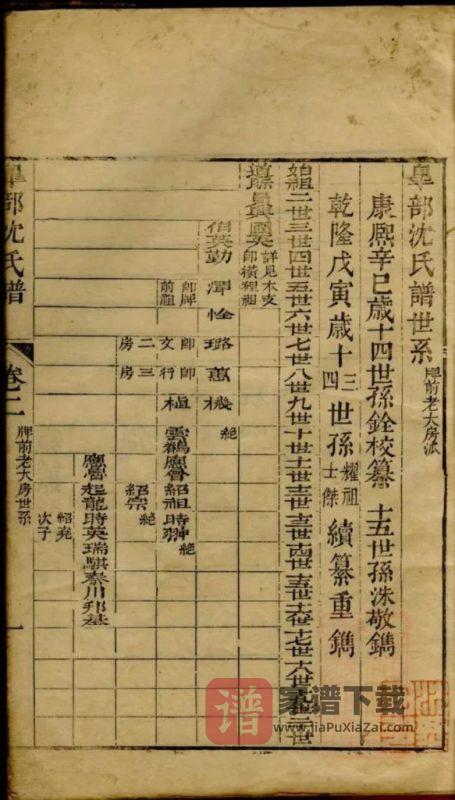 皐部沈氏譜世系 牌前老大房派
康熙辛巳歲十四世孫銓校纂 十五世孫洙敬鐫
乾隆戊寅歲十三四世孫耀祖士傑續纂重鐫
始祖二世三世四世五世六世七世八世九世十世十一世十二世十三世十四世十五世十六世十七世十八世十九世二十世
詳見本支
伯英勤
澤
璐蕙機 絕
師牌前祖
師文二房
師行三房
植
雲鶴應曾紹祖時翀 絕
紹宗 絕
應曾起龍時英瑞騏秦川邦基
紹堯次子
皐部沈氏譜
卷二
牌前老大房世系
一
谱
家谱下载
www.JiaPuXiaZai.com